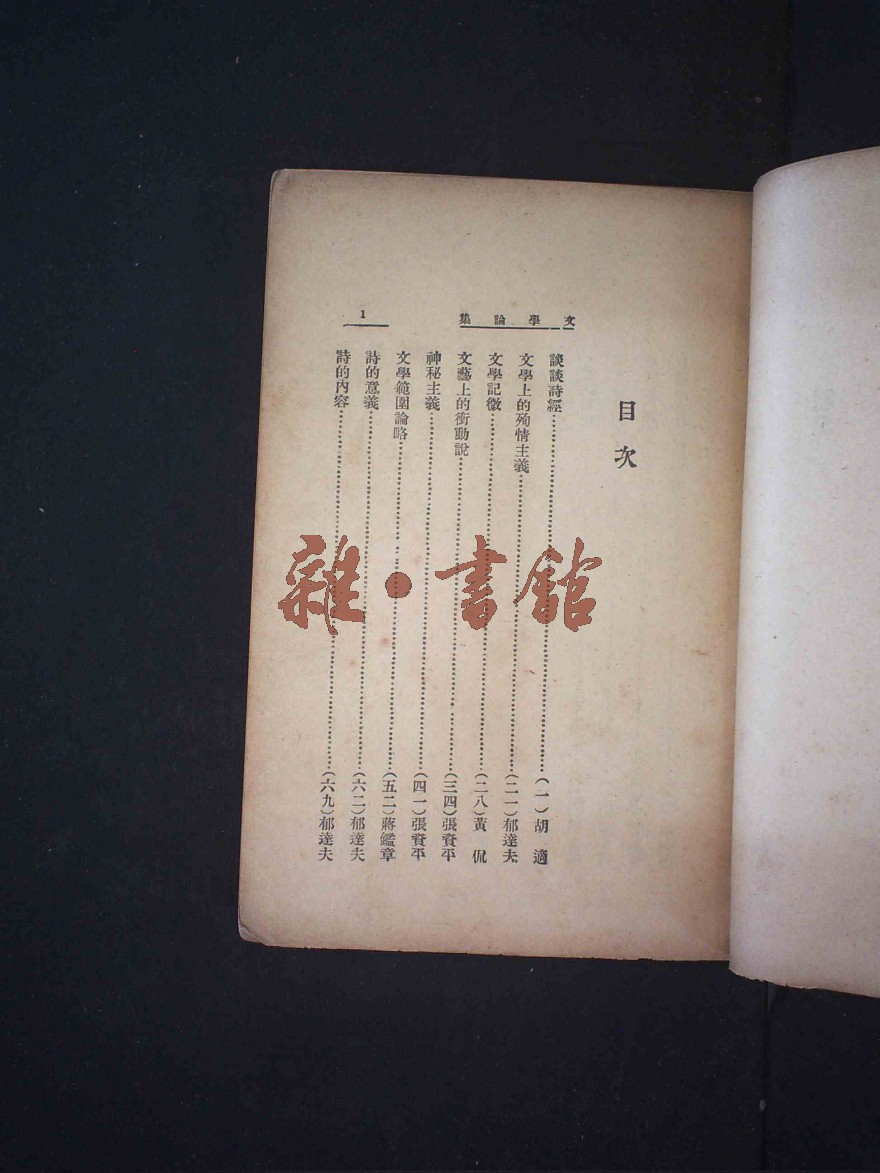 文學論集
1
目次
談談詩經……(一)胡適
文學上的殉情主義……(二一)郁達夫
文學記微……(二八)黃侃
文藝上的衝動說……(三四)張資平
神秘主義……(四一)張資平
文學範圍論略……(五二)蔣鑑章
詩的意義……(六二)郁達夫
詩的內容……(六九)郁達夫
雜·書館